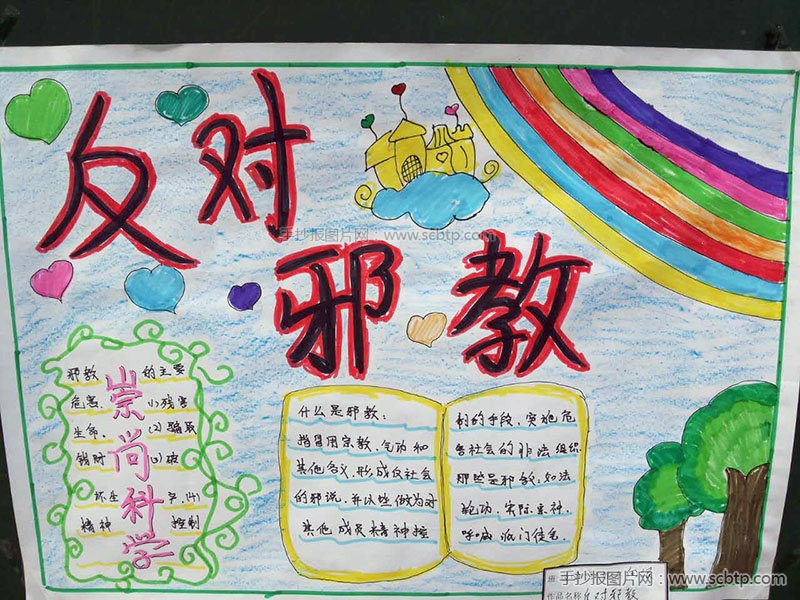 反对
邪教
手抄报图片网：www.scbtp.com
崇尚科学
邪教 的主要
危害 (1)残害
生命、(2)骗取
钱财 (3)破
坏生 (4)
精神 控制
什么是邪教：
指冒用宗教、气功和
其他名义,形成反社会
的邪说,并以些做为对
其他成员精神控
制的手段,实施危
害社会的非法组织
那些是邪教:如法
轮功、实际
呼喊
手抄报图片网：www.scbtp.com
作品名称 反对邪教